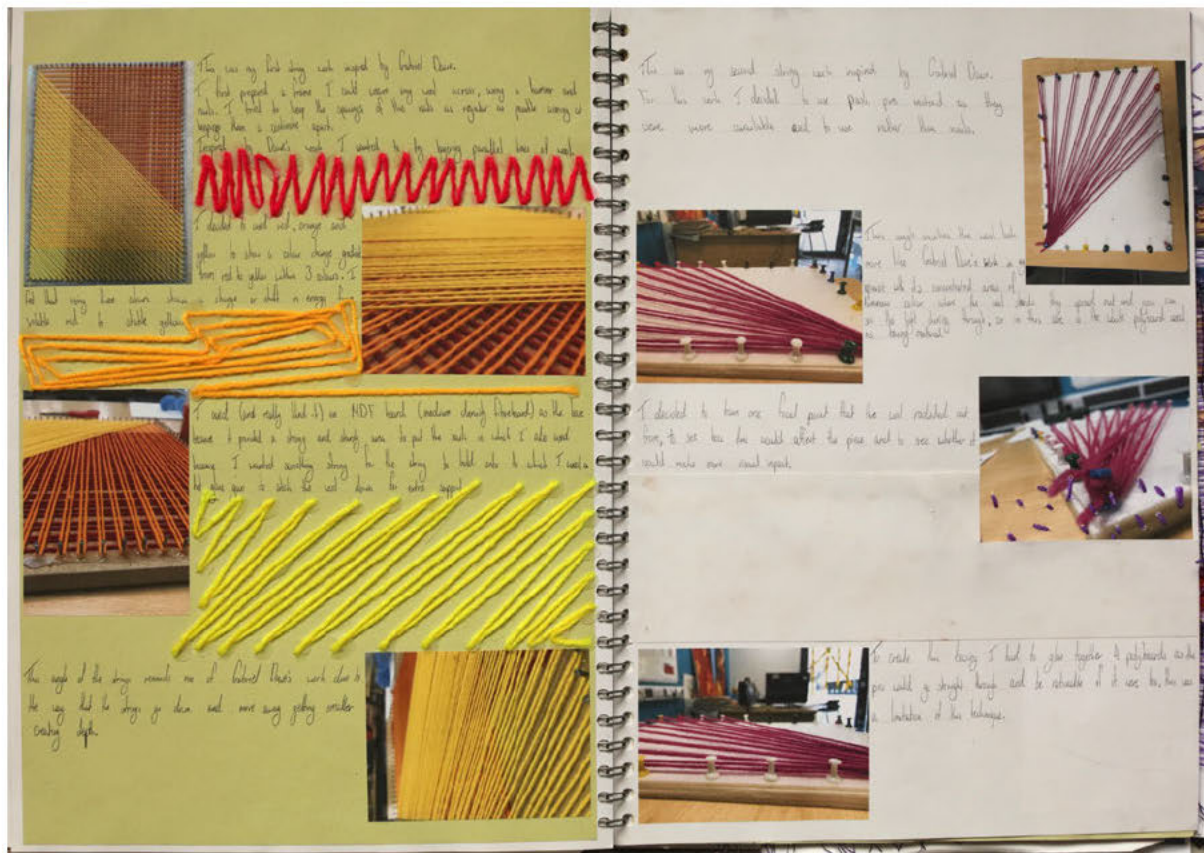 This was my first string work inspired by Gabriel Dawe.
I first prepared a frame I could weave my wool across, using a hammer and
nails. I tried to keep the spacings of the nails as regular as possible
than a centimetre apart.
Inspired by Dawe's work I wanted to try layering parallel lines of wool.
I decided to use red, orange and
yellow to show a colour change gradient
from red to yellow within 3 colours. I
felt that using these colours a change or shift in energy
red to yellow.
I used (and really liked it) an MDF board (medium density fibreboard) as the base
because it provided a strong and sturdy area to put the nails in which I also used
because I wanted something strong for the string to hold onto to which I used a
hot glue gun to stick the wool down for extra support.
This angle of the strings reminds me of Gabriel Dawe's work due to
the way that the strings go down and move away getting smaller
creating depth.
This was my second string work inspired by Gabriel Dawe.
For this work I decided to use push pins instead as they
were more available and to use rather than nails.
This angle the wool look
more like Gabriel Dawe's work as it
with its concentrated area of
colour where the wool and you can
see the light through, so in this case it's the white polyboard used
as the material.
I decided to have one focal point that the wool radiated out
from, to see how this would affect the piece and to see whether it
would make more visual impact.
To create this I had to glue together 4 polyboards as the
pins would go straight through and be noticeable if it were to, this was
a limitation of this technique.